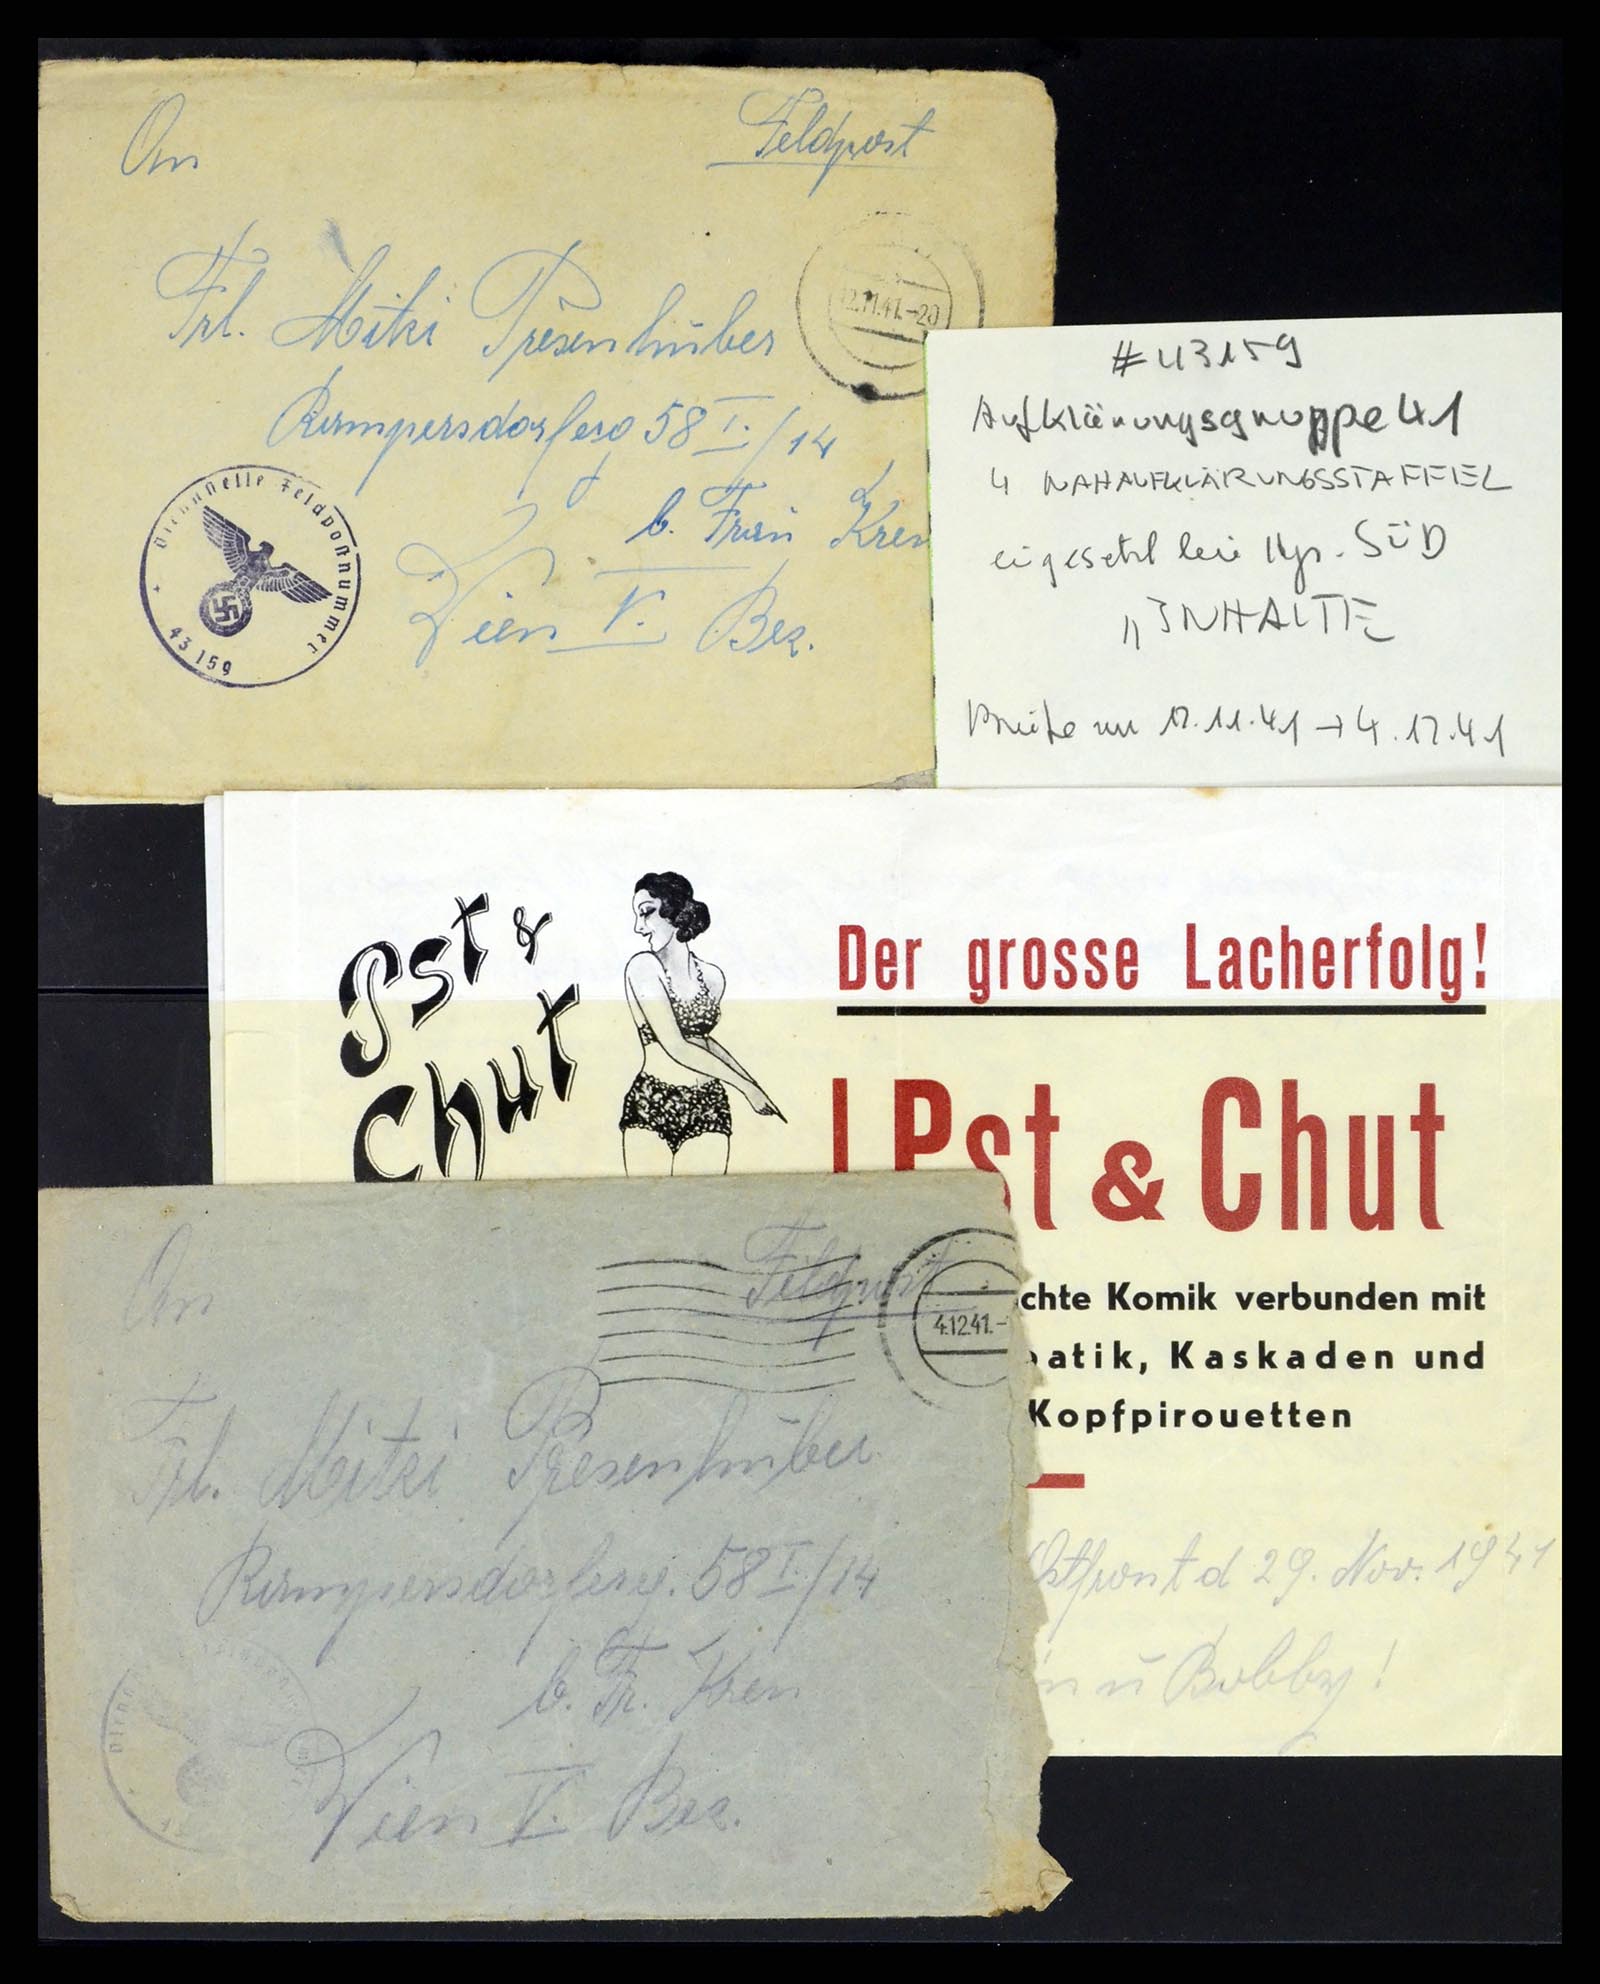 An
Feldpost
Frl. Mitzi Priesenhuber
12.11.41.-20
Rampersdorferg 58 I./14
b. Frau Kren
Wien V. Bez.
Dienststelle Feldpostnummer
43159
#43159
Aufklärungsgruppe 41
4 NAHAUFKLÄRUNGSSTAFFEL
eigesetzt bei Hgr. SÜD
„INHALTE
Briefe von 12.11.41 → 4.12.41
Pst &
Chut
Der grosse Lacherfolg!
Pst & Chut
chte Komik verbunden mit
batik, Kaskaden und
Kopfpirouetten
Ostfront d 29. Nov. 1941
u Bobby!
An
Feldpost
4.12.41.-
Frl. Mitzi Priesenhuber
Rampersdorferg. 58 I./14
b. Fr. Kren
Wien V. Bez.